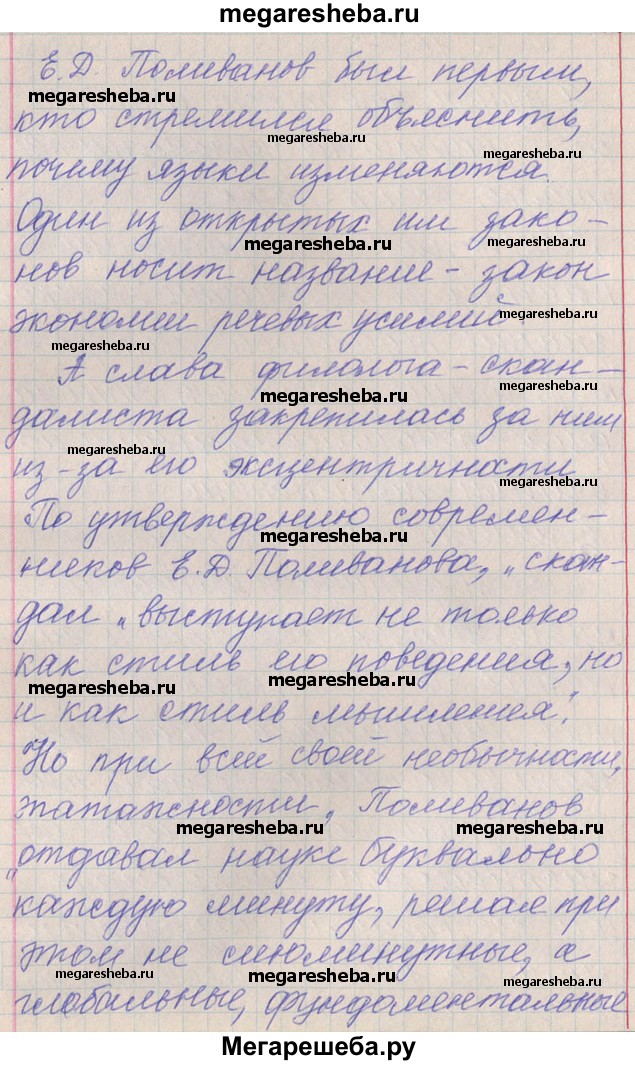 megaresheba.ru
Е.Д. Поливанов был первым,
megaresheba.ru
кто стремился объяснить,
megaresheba.ru
почему языки изменяются.
megaresheba.ru
Один из открытых им зако-
megaresheba.ru
нов носит название - закон
megaresheba.ru
экономии речевых усилий.
megaresheba.ru
А слава филолога-скан-
megaresheba.ru
megaresheba.ru
далиста закрепилась за ним
megaresheba.ru
из-за его эксцентричности
megaresheba.ru
По утверждению современ-
megaresheba.ru
ников Е.Д. Поливанова, „скан-
дал „выступает не только
как стиль его поведения, но
megaresheba.ru
megaresheba.ru
и как стиль мышления".
Но при всей своей необычности,
эпатажности, Поливанов
megaresheba.ru
megaresheba.ru
„отдавал науке буквально
каждую минуту, решая при
этом не сиюминутные, а
megaresheba.ru
megaresheba.ru
megaresheba.ru
глобальные, фундаментальные
Мегарешеба.ру